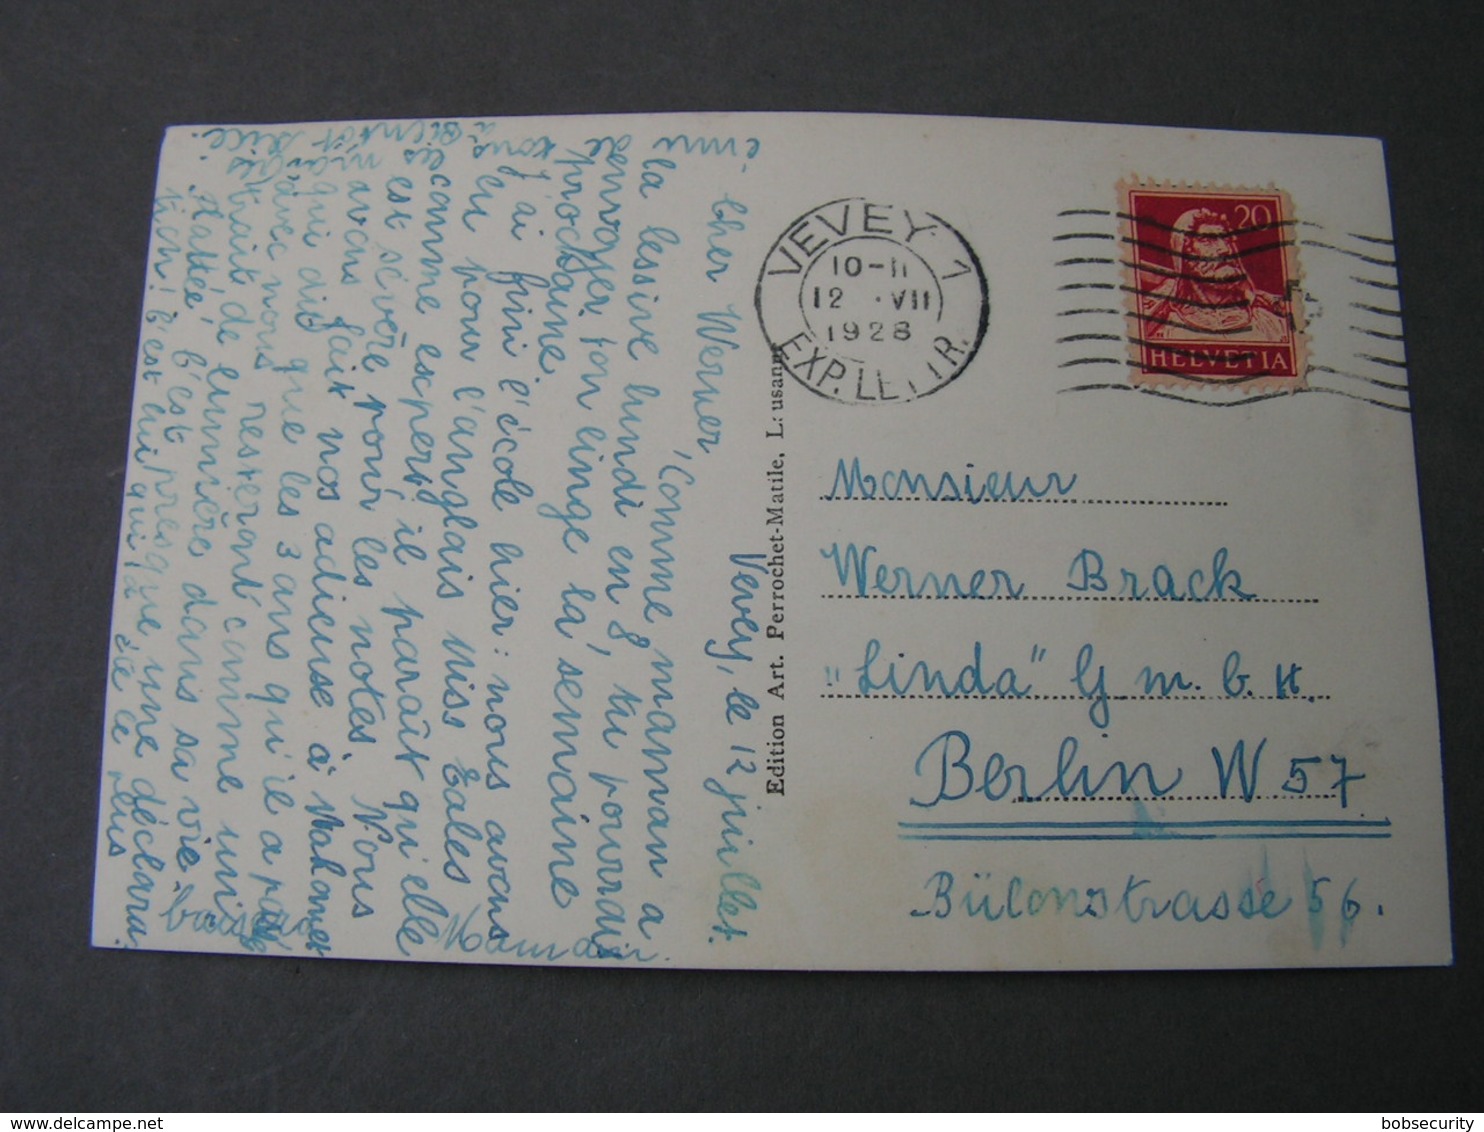 Vevey, le 12 juillet.
Cher Werner,
Comme maman a
la lessive lundi en 8, tu pourrais
renvoyer ton linge la semaine
prochaine.
J'ai fini l'école hier: nous avons
eu pour l'anglais Miss Eales
comme expert, il paraît qu'elle
est sévère pour les notes. Nous
avons fait nos adieux à
qui dit que les 3 ans qu'il a passé
avec nous resteront comme un
trait de lumière dans sa vie.
Flattée! C'est presque une déclara-
tion! C'est lui qui l'a le plus
à Bientôt
baisers
Maman
VEVEY 1
10-11
12 . VII
1928
EXP. LETTR.
20
HELVETIA
Edition Art. Perrochet-Matile, Lausanne
Monsieur
Werner Brack
"Linda" G. m. b. H.
Berlin W 57
Bülowstrasse 56.
bobsecurity